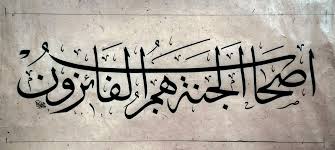 اصحاب الجنة هم الفائزون